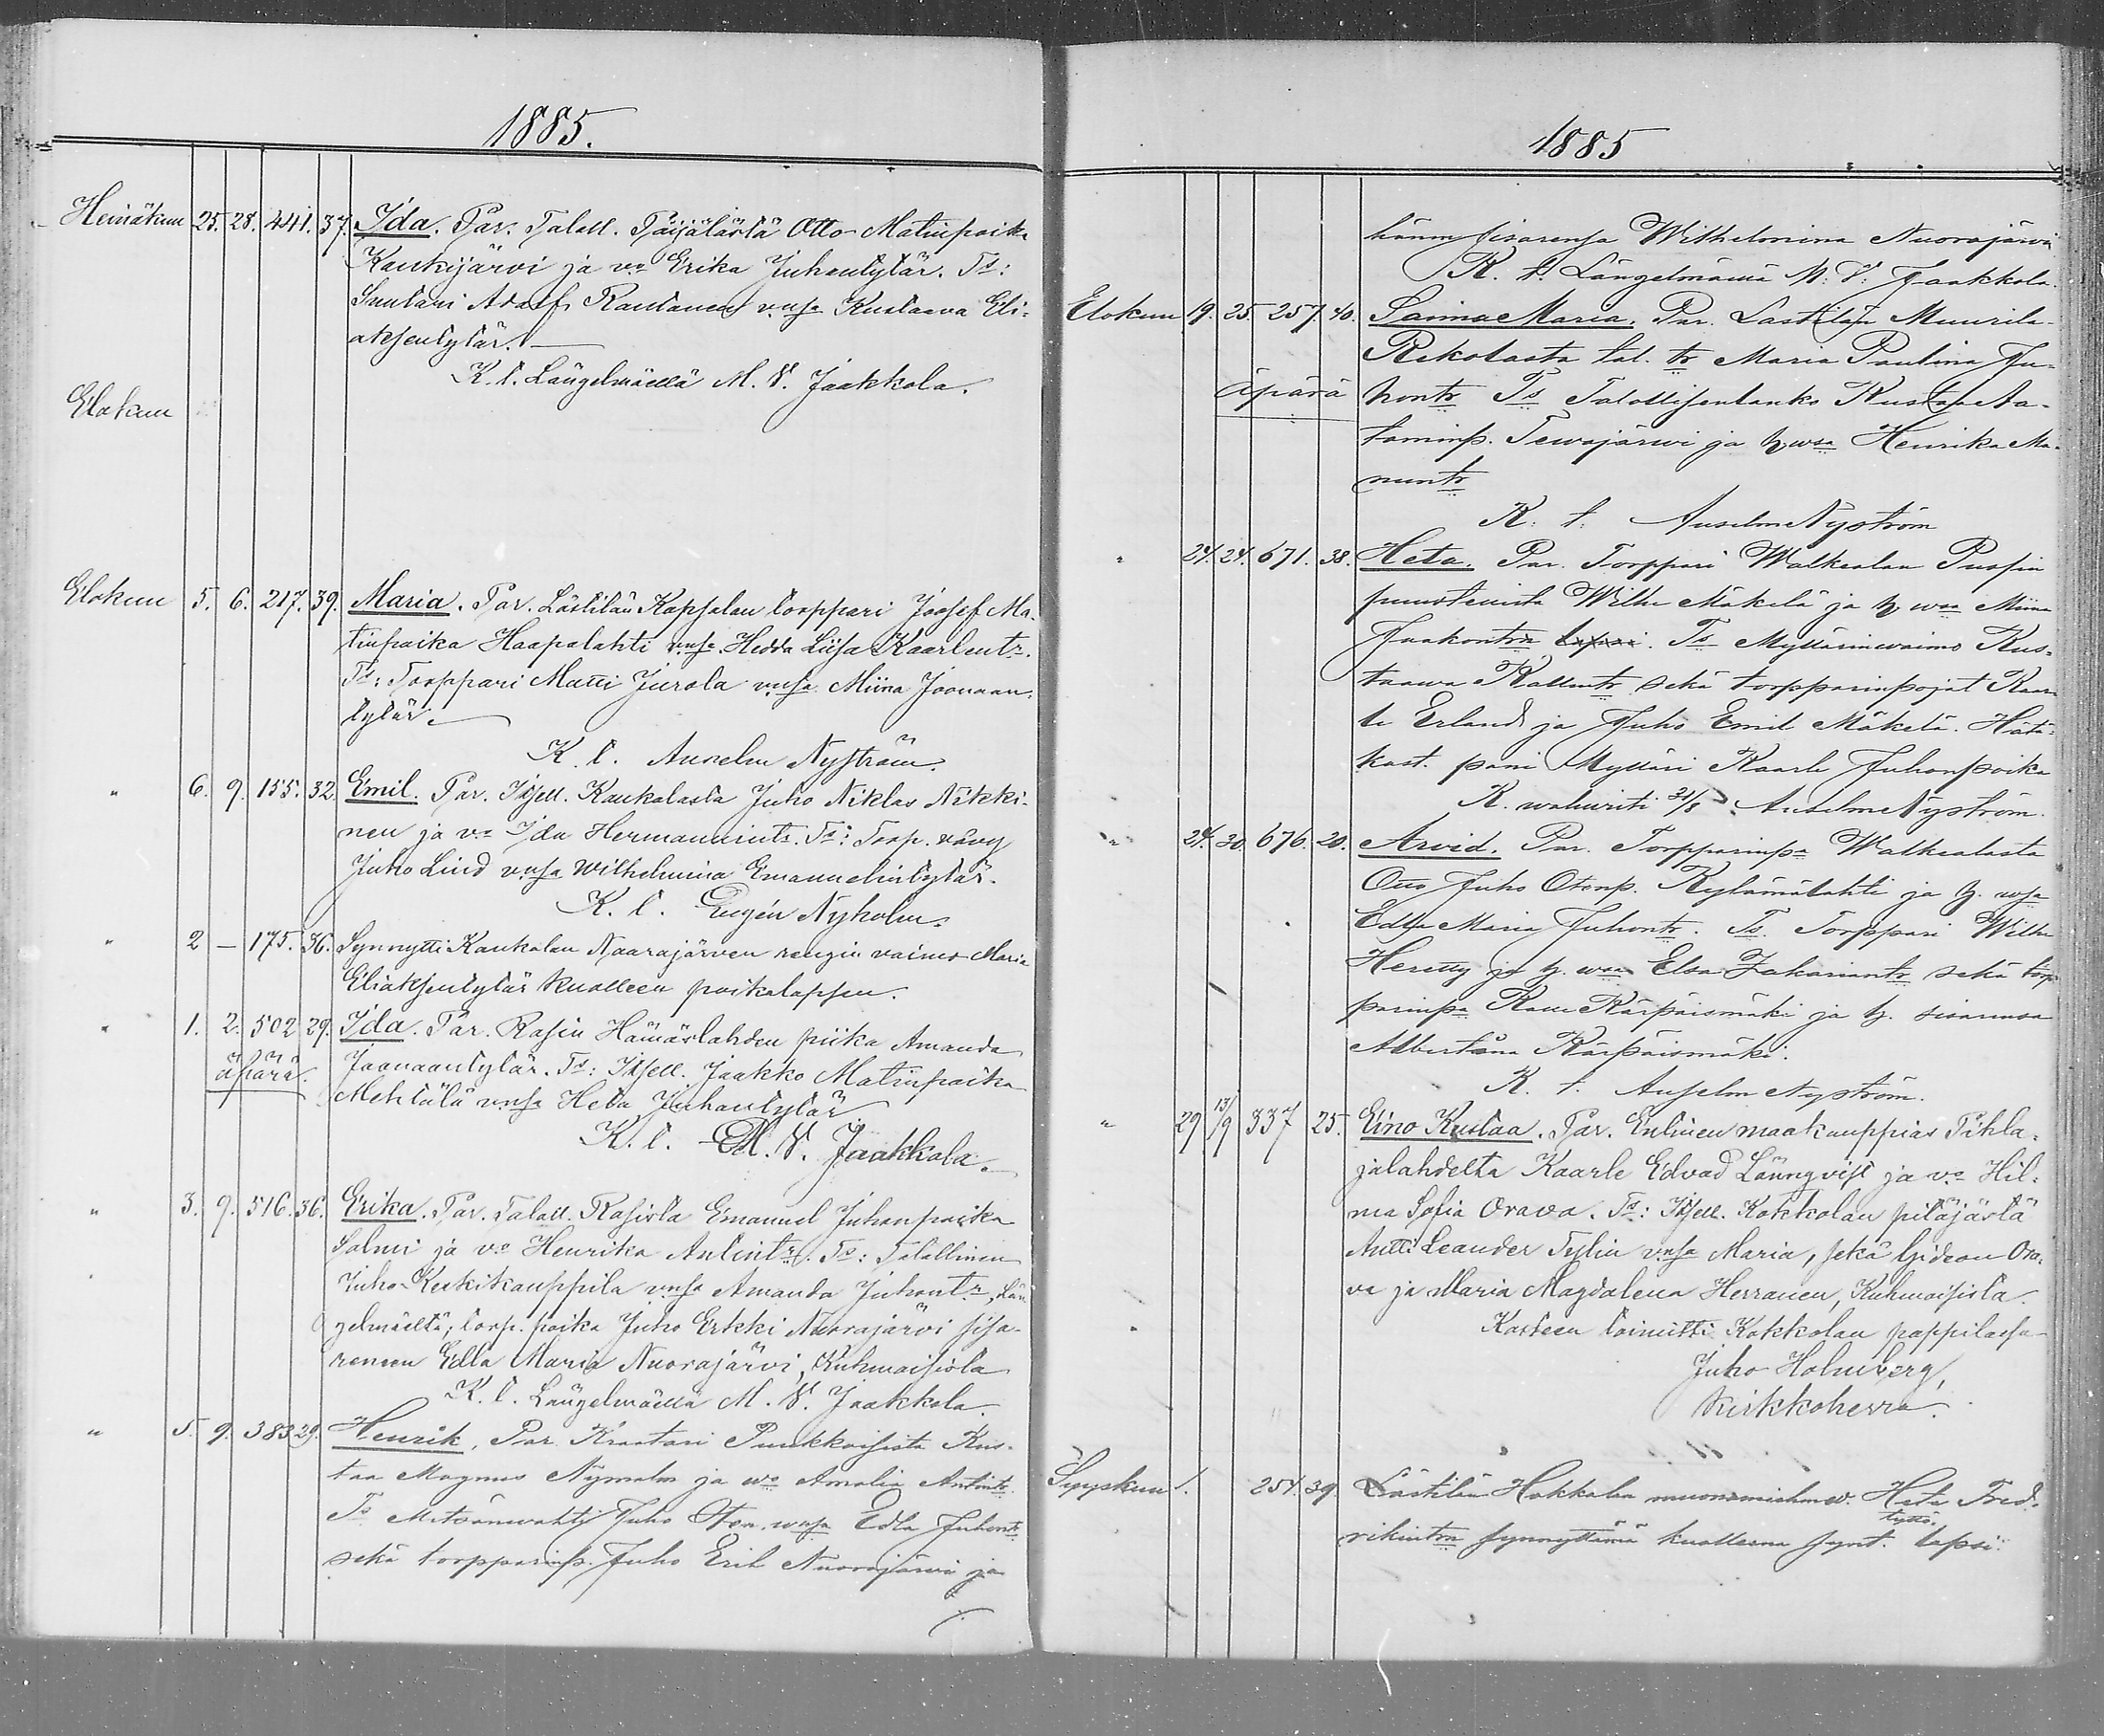 1885.
Heinäkuu 25. 28. 441. 37. Ida. Par. Talall. Päijälästä Otto Matinpoika
Kaukijärvi ja vo Erika Juhantytär. Ts:
Suutari Adolf Rautanen vnsa Kustaava Eli-
aksentytär.
K. t. Längelmäellä M. V. Jaakkola.
Elokuu
Elokuu 5. 6. 217. 39. Maria. Par. Lästilän Kapsalan torppari Joosef Ma-
tinpoika Haapalahti vnsa Hedda Liisa Kaarlentr.
Ts: Torppari Matti Jurola vnsa Miina Joonaan-
tytär.
K. t. Anselm Nyström.
" 6. 9. 155. 32. Emil. Par. Itsell. Kaukalasta Juho Niklas Nikki-
nen ja vo Ida Hermannintr. Ts: Torp. vävy
Juho Lind vnsa Wilhelmina Emanuelintytär.
K. t. Eugén Nyholm.
" 2 — 175. 36. Synnytti Kaukalan Naarajärven rengin vaimo Maria
Eliaksentytär kuolleen poikalapsen.
" 1. 2. 502 29. Ida. Par. Rasin Hämäslahden piika Amanda
äpärä. Joonaantytär. Ts: Itsell. Jaakko Matinpoika
Mehtälä vnsa Heta Juhantytär
K. t. M. V. Jaakkola.
" 3. 9. 516. 36. Erika. Par. Talall. Rasista Emanuel Juhanpoika
Salmi ja vo Henrika Antintr. Ts: Talallinen
Juho Keskikauppila vnsa Amanda Juhantr, Län
gelmäeltä; torp. poika Juho Erkki Nuorajärvi sisa-
rensen Edla Maria Nuorajärvi, Kuhmoisista
K. t. Längelmäellä M. V. Jaakkola.
" 5. 9. 383 29. Henrik, Par. Kraatari Puukkoisista Kus-
taa Magnus Nymalm ja wo Amalia Antintr.
Ts Metsänwahti Juho Oton. wnsa Edla Juhontr
sekä torpparinp. Juho Erik Nuorajärwi ja
1885
hänen sisarensa Wilhelmina Nuorajärwi
K. t. Längelmäellä M. V. Jaakkola.
Elokuu 19. 25. 257. 40. Saima Maria. Par. Lastilän Muurila-
Rekolasta tal. tr Maria Paulina Ju-
äpärä hontr Ts Talollisenlanko Kustaa Aa-
taminp. Tewajärwi ja h. wsa Henrika Ma-
nuntr
K. t. Anselm Nyström
" 24. 24. 671. 38. Heta. Par. Torppari Walkealan Pussin
Wilhe Mäkelä ja h. waa Miina
Jaakontra lapsi. Ts Myllärinwaimo Kus-
taawa Kallentr sekä torpparinpojat Kaar-
le Erland ja Juho Emil Mäkelä. Hätä-
kast. pani Mylläri Kaarle Juhonpoika
K. wahwisti 31/8 Anselm Nyström.
" 24. 30. 676. 20. Arvid. Par. Torpparinpa Walkealasta
Otto Juho Otonp. Kylämälahti ja h. wsa
Edla Maria Juhontr. Ts. Torppari Wilhe
ja h. waa Elsa Zakariantr sekä torp-
parinpa Kärpäismäki ja h. sisarensa
Albertina Kärpäismäki.
K. t. Anselm Nyström.
" 29 13/9 337 25. Eino Kustaa. Par. Entinen maakauppias Pihla-
jalahdelta Kaarle Edvad Lönnqvist ja vo Hil-
ma Sofia Orava. Ts: Itsell. Kokkolan pitäjästä
Antti Leander Tylin vnsa Maria, sekä Gideon Ora-
va ja Maria Magdalena Herranen, Kuhmoisista.
Kasteen toimitti Kokkolan pappilassa
Juho Holmberg,
Kirkkoherra.
Syyskuu 1. 254. 39. Lästilän Hakkalan muonamiehenw. Heta Fred-
tyttö.
rikintra synnyttämä kuolleena synt. lapsi.